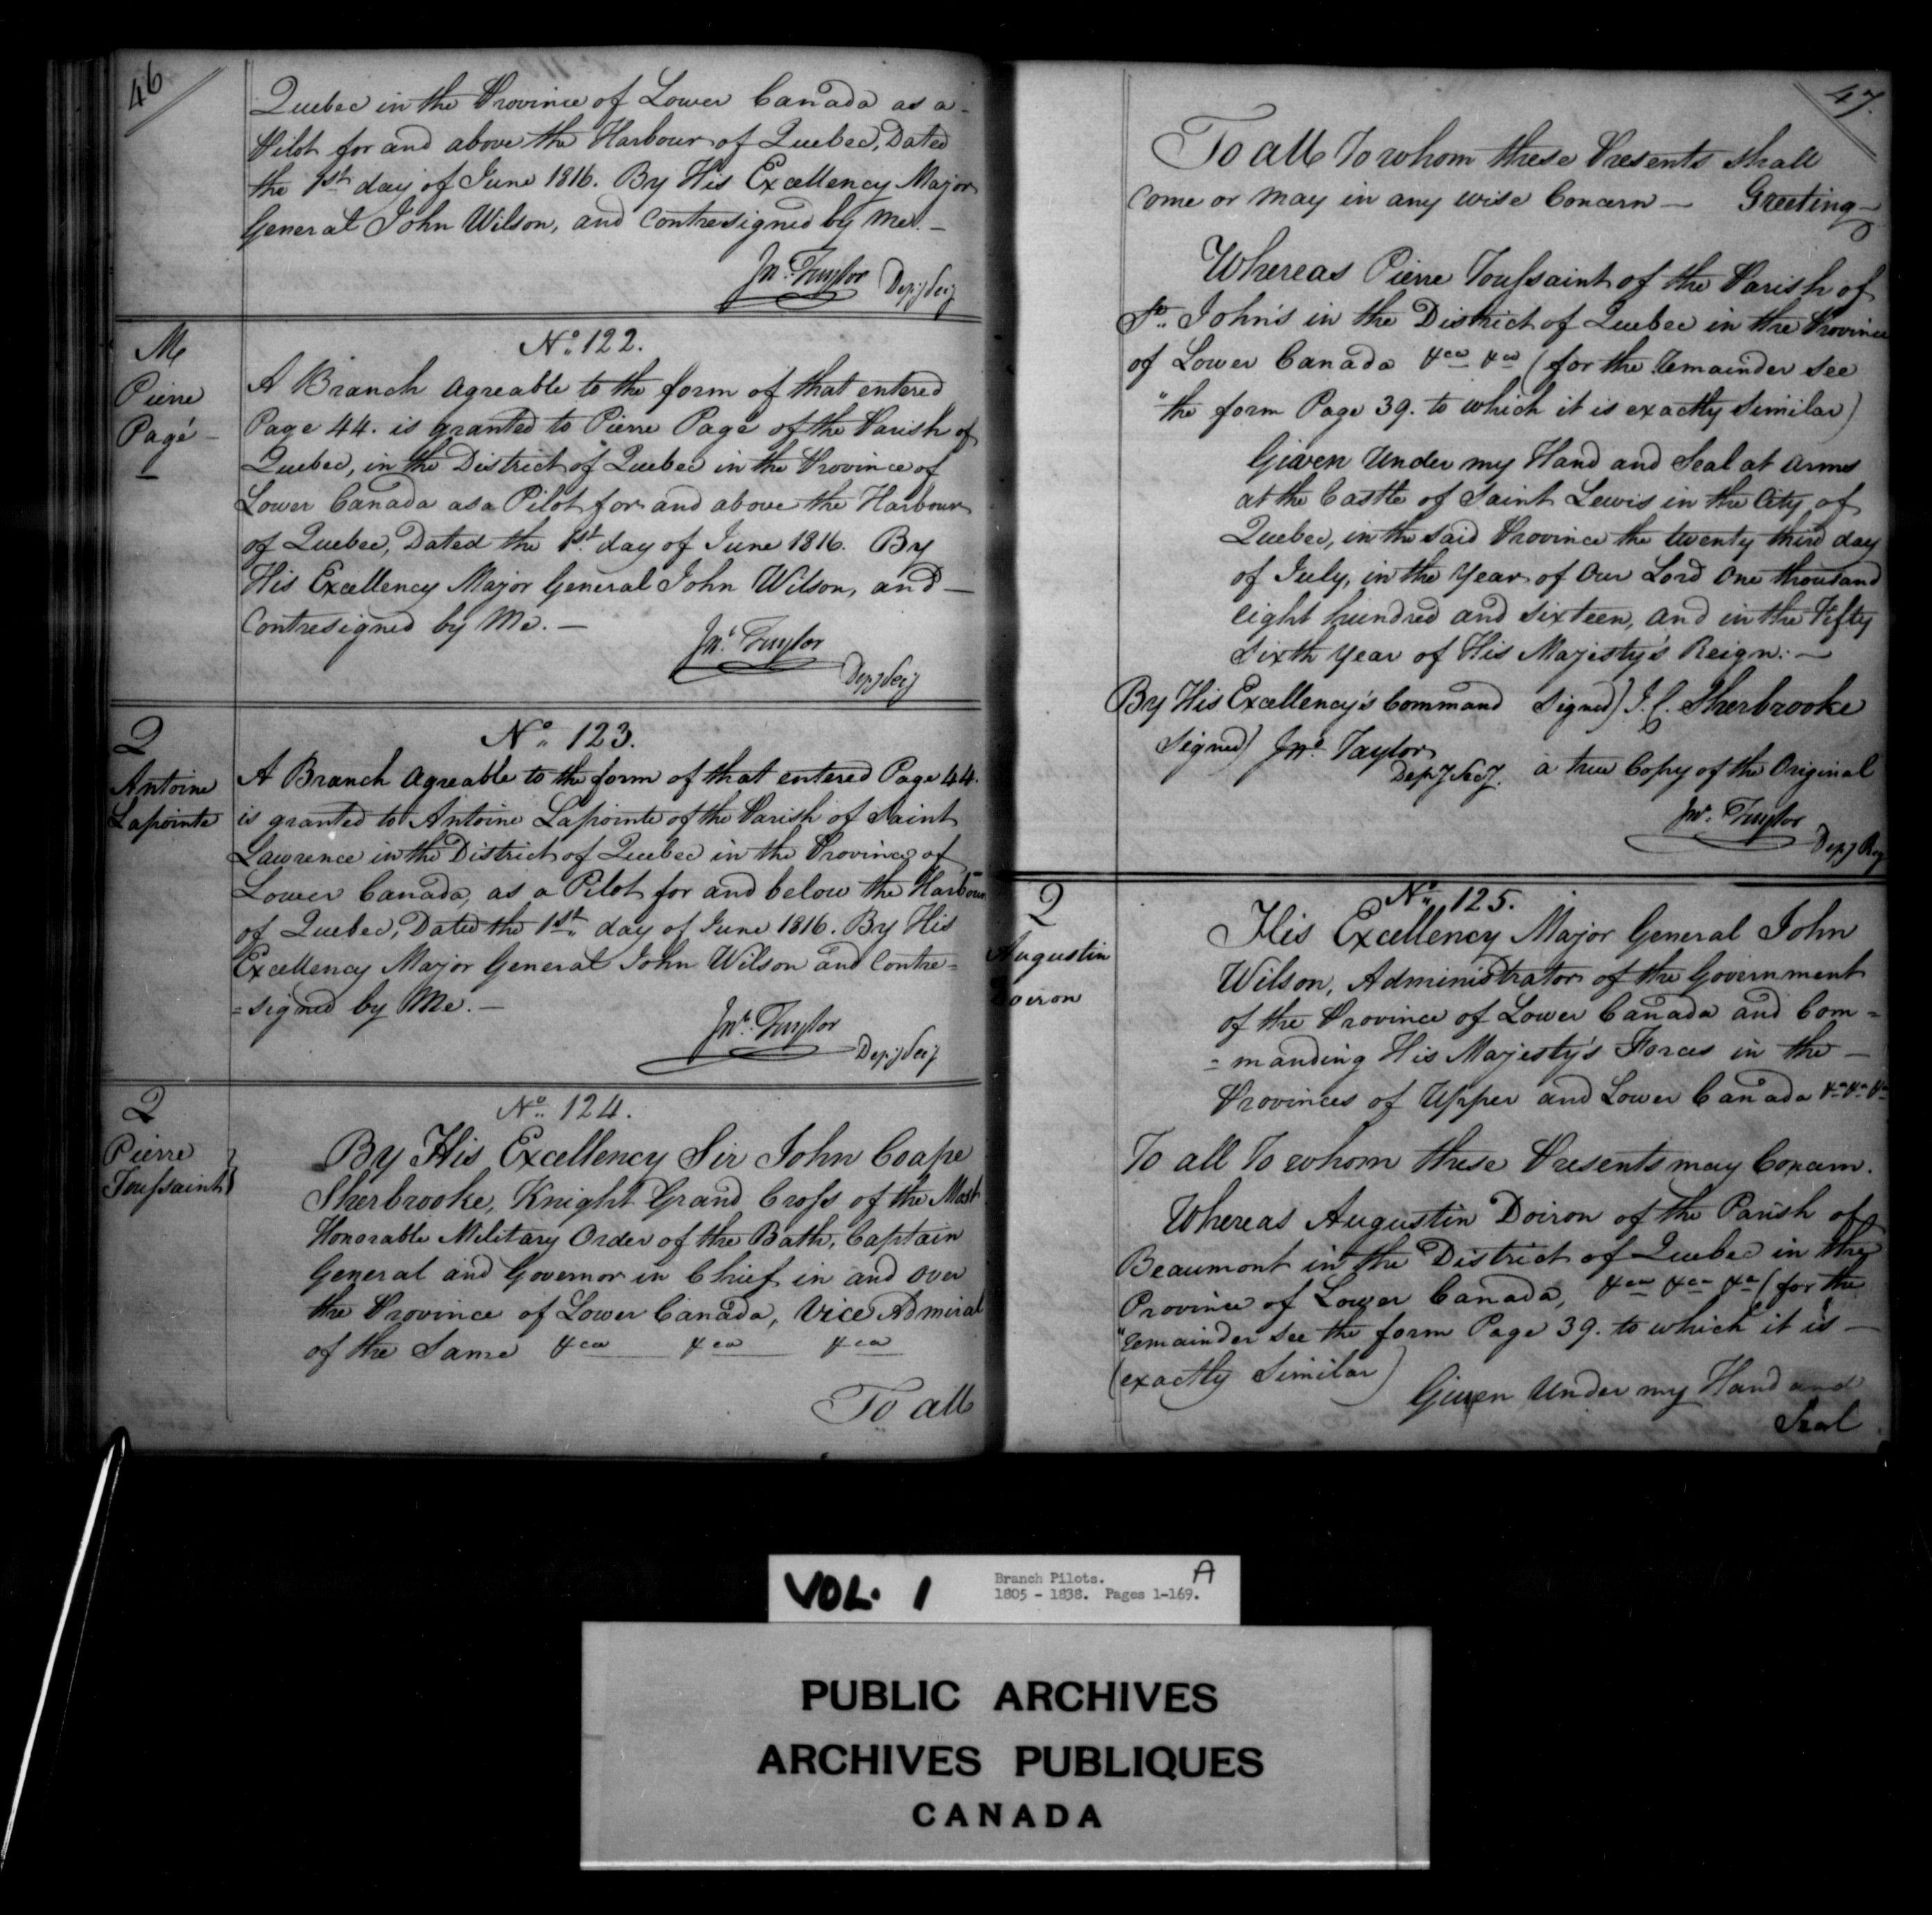 46
Quebec in the Province of Lower Canada as a -
Pilot for and above the Harbour of Quebec, Dated
the 1st day of June 1816. By His Excellency Major
General John Wilson, and Contresigned by Me. -
Jno. Taylor Depy Secy
M
Pierre
Pagé -
No. 122.
A Branch agreable to the form of that entered
Page 44. is granted to Pierre Page of the Parish of
Quebec, in the District of Quebec in the Province of
Lower Canada as a Pilot for and above the Harbour
of Quebec, Dated the 1st day of June 1816. By
His Excellency Major General John Wilson, and -
Contresigned by Me. -
Jno. Taylor
Depy Secy
Q
Antoine
Lapointe
No. 123.
A Branch agreable to the form of that entered Page 44.
is granted to Antoine Lapointe of the Parish of Saint
Lawrence in the District of Quebec in the Province of
Lower Canada, as a Pilot for and below the Harbour
of Quebec, Dated the 1st. day of June 1816. By His
Excellency Major General John Wilson and Contre=
=signed by Me. -
Jno. Taylor
Depy Secy
Q
Pierre
Toussaint
No. 124.
By His Excellency Sir John Coape
Sherbrooke, Knight Grand Cross of the Most
Honorable Military Order of the Bath, Captain
General and Governor in Chief in and over
the Province of Lower Canada, Vice Admiral
of the Same &ca &ca &ca
To all
47.
To all To whom these Presents shall
Come or may in any wise Concern - Greeting -
Whereas Pierre Toussaint of the Parish of
St. John's in the District of Quebec in the Province
of Lower Canada &ca &ca (for the remainder see
"the form Page 39. to which it is exactly similar)
Given Under my Hand and Seal at Arms
at the Castle of Saint Lewis in the City of
Quebec, in the said Province the twenty third day
of July, in the Year of Our Lord One thousand
eight hundred and sixteen, and in the Fifty
Sixth Year of His Majesty's Reign: -
By His Excellency's Command Signed) J. C. Sherbrooke
Signed) Jno. Taylor
Depy Secy. a true Copy of the Original
Jno. Taylor
Depy Reg
Q
Augustin
Doiron
No. 125.
His Excellency Major General John
Wilson, Administrator of the Government
of the Province of Lower Canada and Com=
=manding His Majesty's Forces in the -
Provinces of Upper and Lower Canada &a &a &a
To all To whom these Presents may Concern.
Whereas Augustin Doiron of the Parish of
Beaumont in the District of Quebec in the
Province of Lower Canada, &ca &ca &a (for the
"remainder see the form Page 39. to which it is -
(exactly Similar)
Given Under my Hand and
Seal
VOL. 1
Branch Pilots.
1805 - 1838. Pages 1-169.
A
PUBLIC ARCHIVES
ARCHIVES PUBLIQUES
CANADA